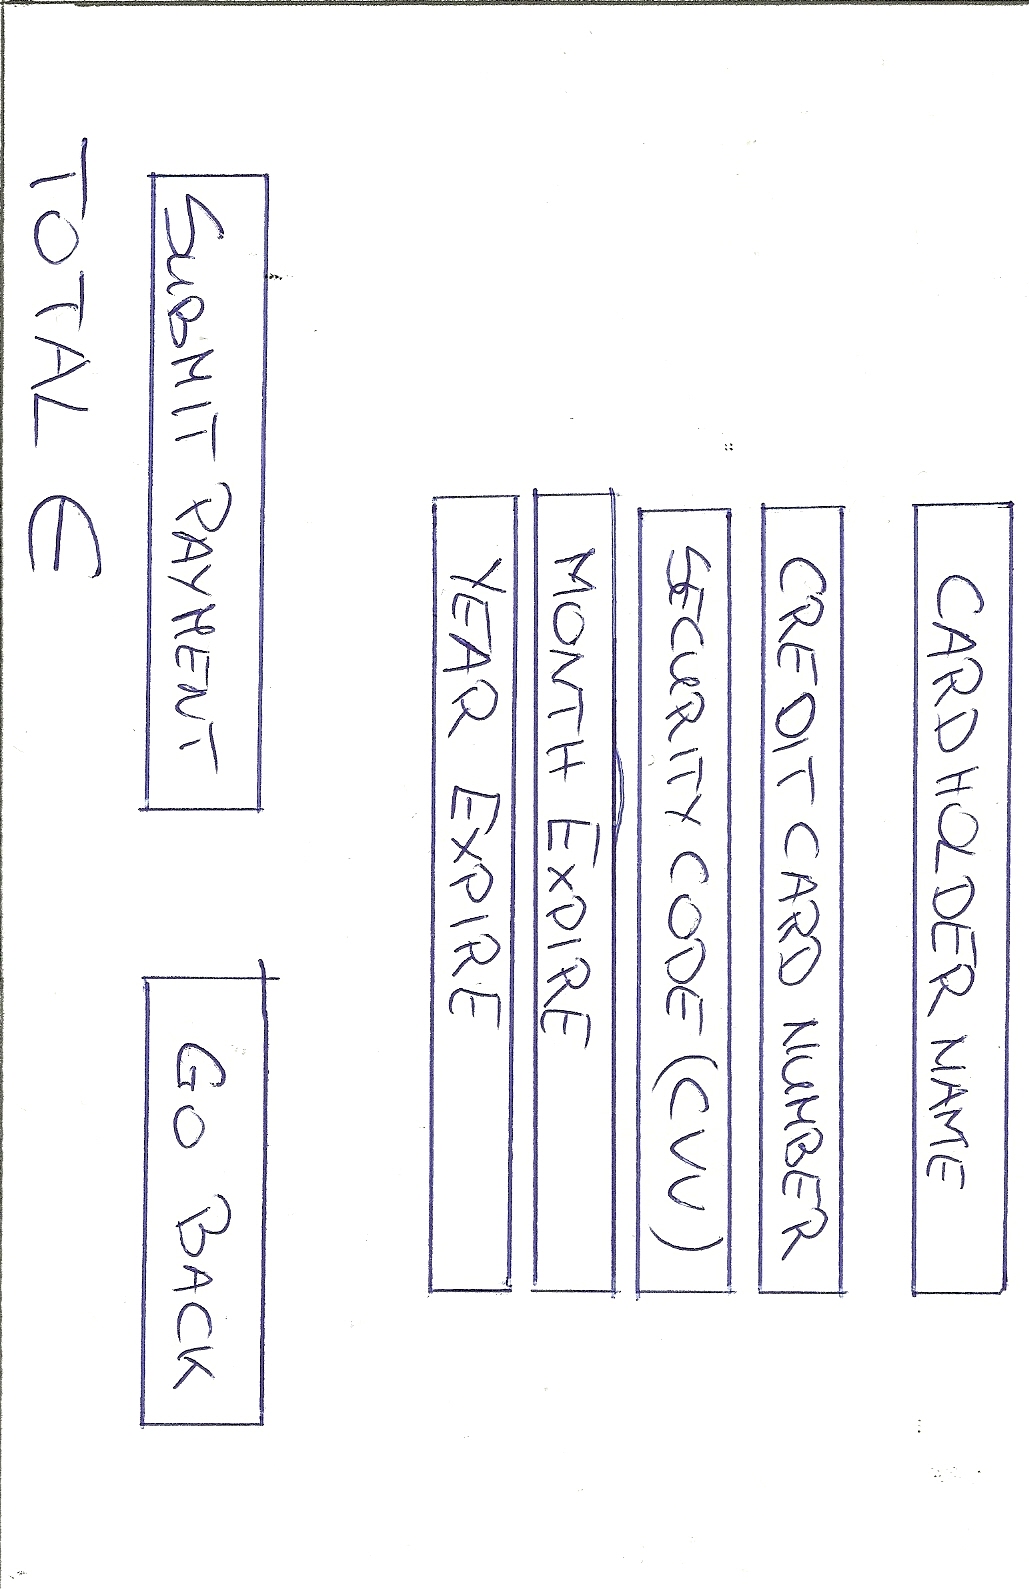 CARD HOLDER NAME
CREDIT CARD NUMBER
SECURITY CODE (CVV)
MONTH EXPIRE
YEAR EXPIRE
SUBMIT PAYMENT GO BACK
TOTAL €